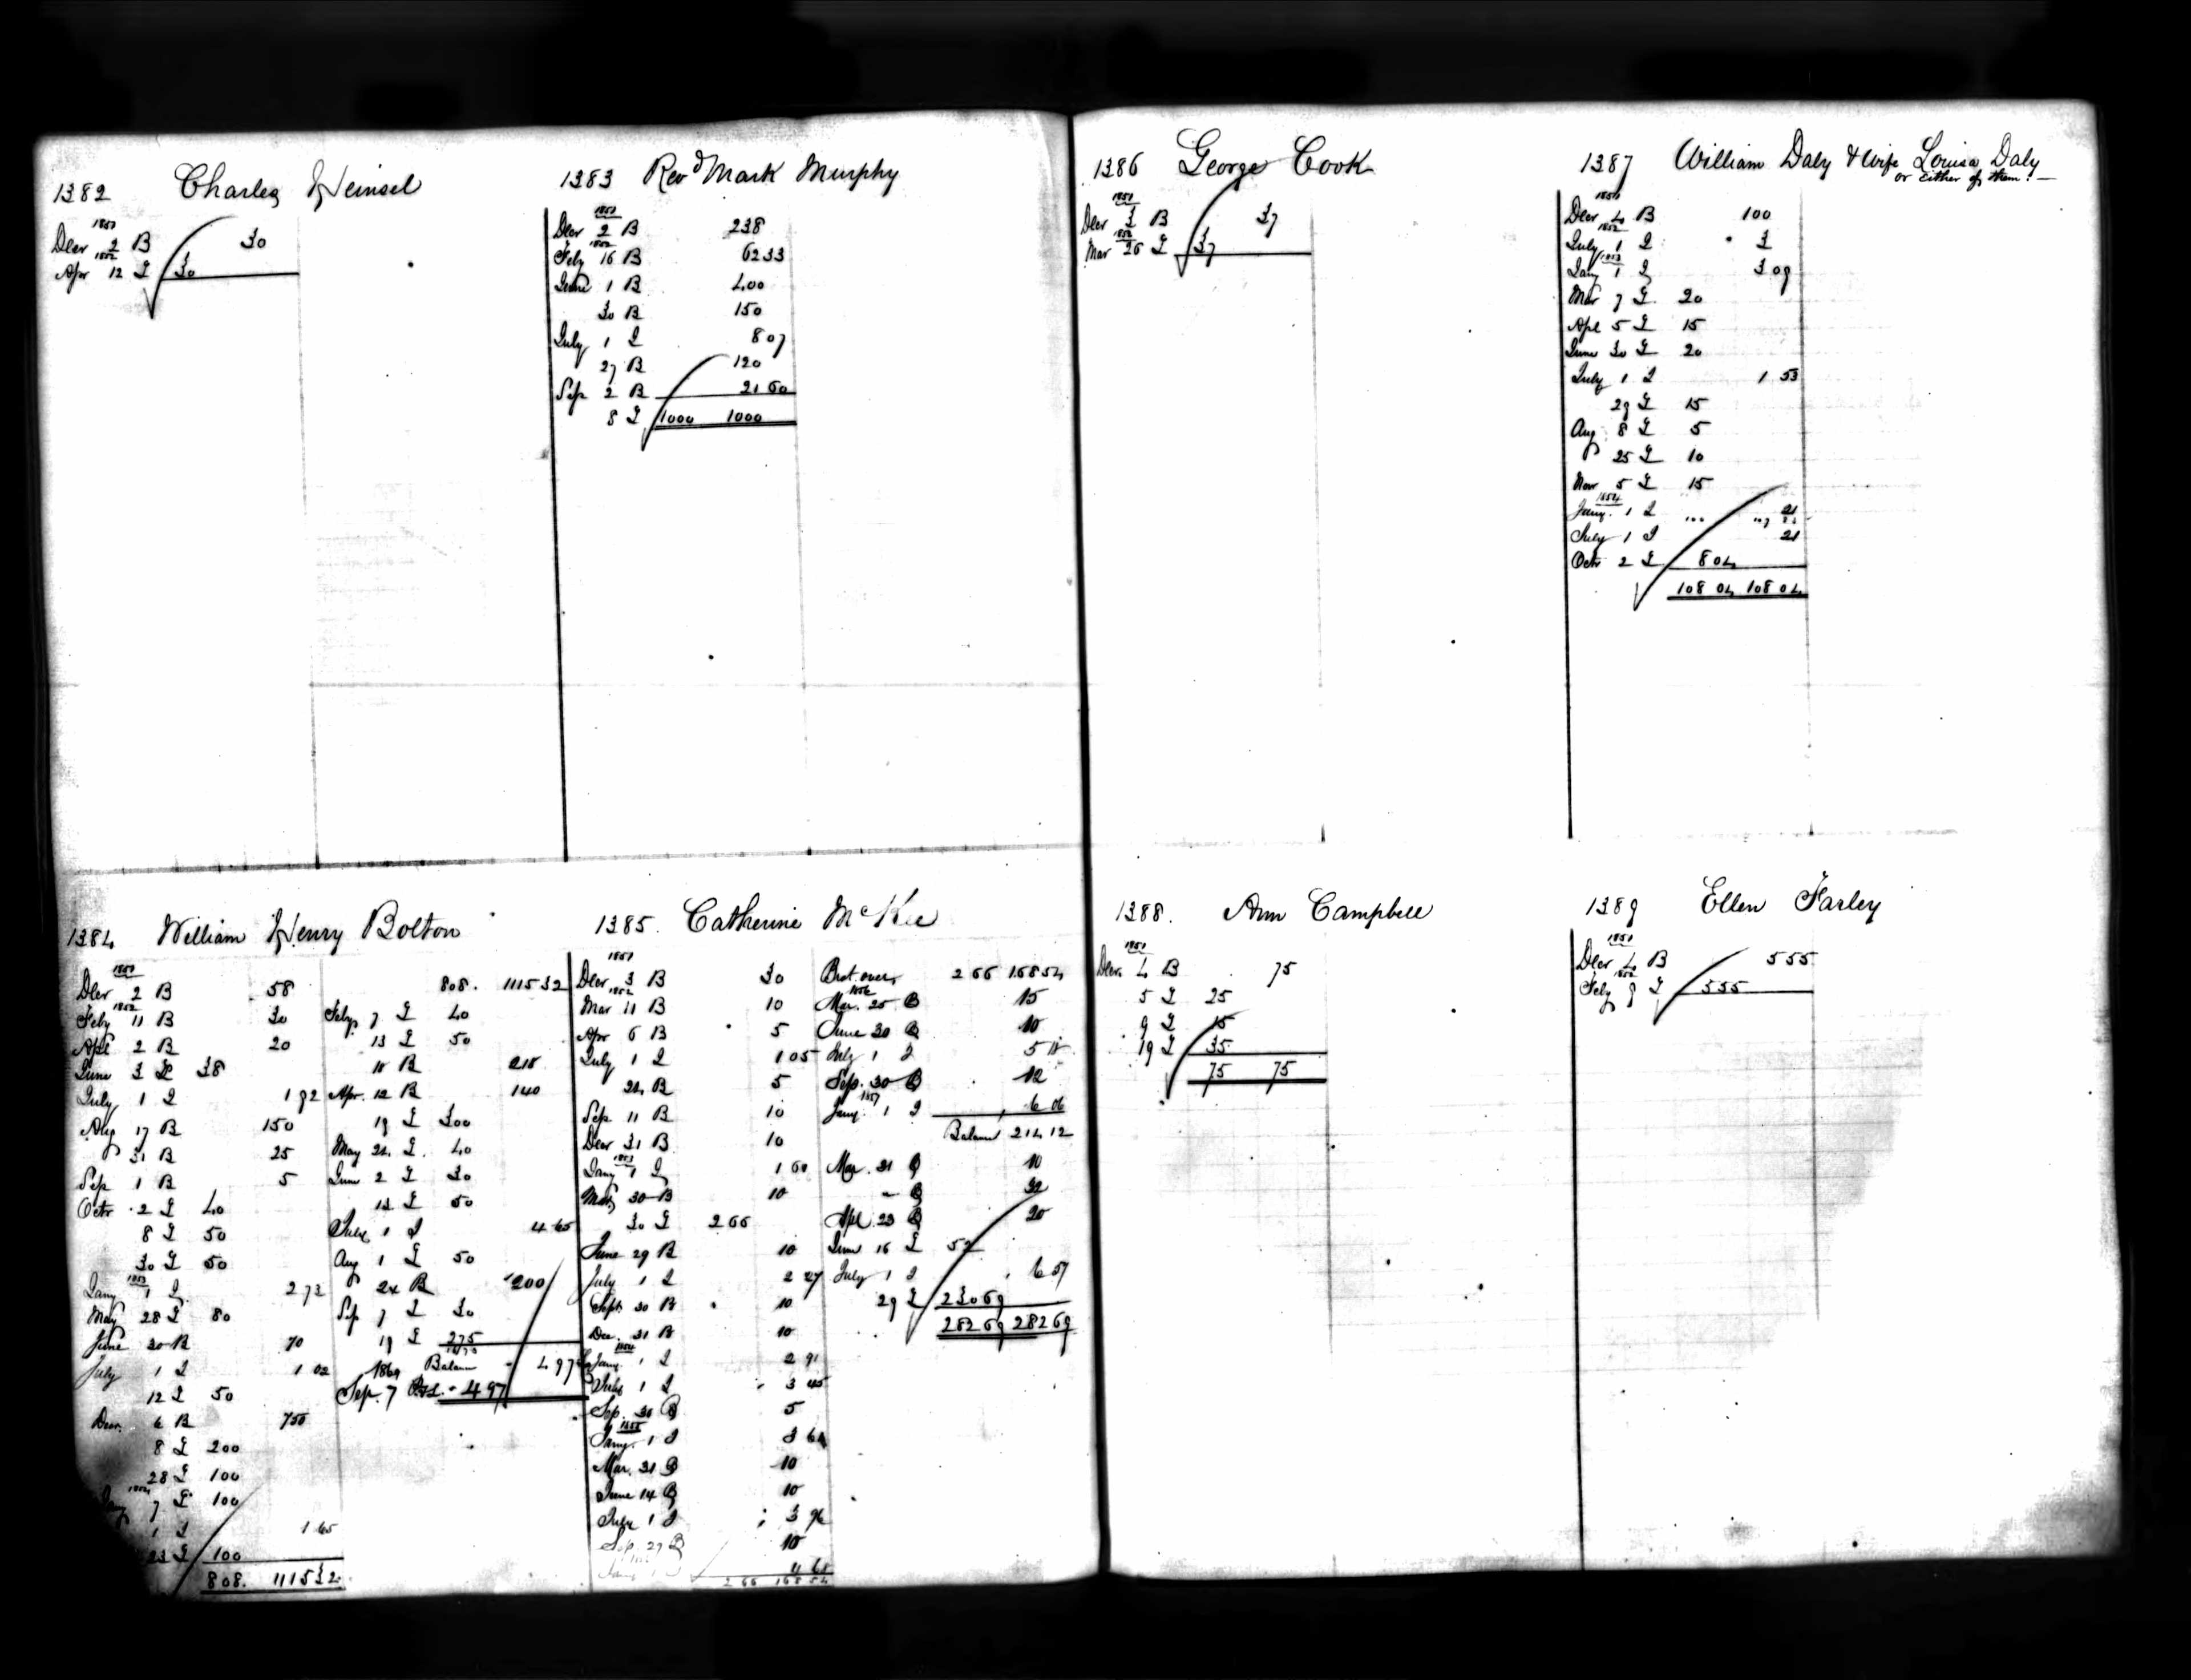 1382 Charles Heinsel
1851
Decr 2 B 30
1852
Apr 12 L 30
1383 Revd Mark Murphy
1851
Decr 2 B 238
1852
Feby 16 B 62 33
June 1 B 400
30 B 150
July 1 I 8 07
27 B 120
Sep 2 B 21 60
8 L 1000 1000
1384 William Henry Bolton
1851
Decr 2 B 58
1852
Feby 11 B 30
Apl 2 B 20
June 3 L 38
July 1 I 1 92
Aug 17 B 150
31 B 25
Sep 1 B 5
Octr 2 L 40
8 L 50
30 L 50
1853
Jany 1 I 2 73
May 28 L 80
June 30 B 70
July 1 I 1 02
12 L 50
Decr. 6 B 750
8 L 200
28 L 100
1854
7 L 100
1 I 1 65
23 L 100
808. 1115 32
808. 1115 32
Feby 7 L 40
13 L 50
B
Apr. 12 B 140
19 L 300
May 24 L. 40
June 2 L 30
L 50
July 1 I 4 65
Aug 1 L 50
24 B 200
Sep 7 L 30
19 L 275
Balance 4 97
1869
Sep. 7 4 97
1385. Catherine McKee
1851
Decr 3 B 30
1852
Mar 11 B 10
Apr 6 B 5
July 1 I 1 05
24 B 5
Sep 11 B 10
Decr 31 B 10
1853
Jany 1 I 1 60
Mar 30 B 10
30 L 2 66
June 29 B 10
July 1 I 2 27
Sept. 30 B 10
Dec. 31 B 10
1854
Jany. 1 I 2 91
July 1 I 3 45
Sep. 30 B 5
1855
Jany. 1 I 3 64
Mar. 31 B 10
June 14 B 10
July 1 I 3 96
Sep. 29 B 10
4 65
2 66 168 54
Brot over 2 66 168 54
1856
Mar. 25 B 15
June 30 B 10
July 1 I
Sep. 30 B 12
1857
Jany. 1 I 6 06
Balance 214 12
Mar. 31 B 10
B
Apl. 23 B 20
June 16 L 52
July 1 I 6 57
29 L 230 69
282 69 282 69
1386 George Cook
1851
Decr 3 B 37
1852
Mar 26 L 37
1387 William Daly & Wife Louisa Daly
or either of them.
1851
Decr 4 B 100
1852
July 1 I 3
1853
Jany 1 I 3 09
Mar 7 L 20
Apl 5 L 15
June 30 L 20
July 1 I 1 53
29 L 15
Aug 8 L 5
25 L 10
Nov 5 L 15
1854
Jany. 1 I 21
July 1 I 21
Octr 2 L 8 04
108 04 108 04
1388. Ann Campbell
1851
Decr. 4 B 75
5 L 25
9 L 15
19 L 35
75 75
1389 Ellen Farley
1851
Decr 4 B 555
1852
Feby 9 L 555